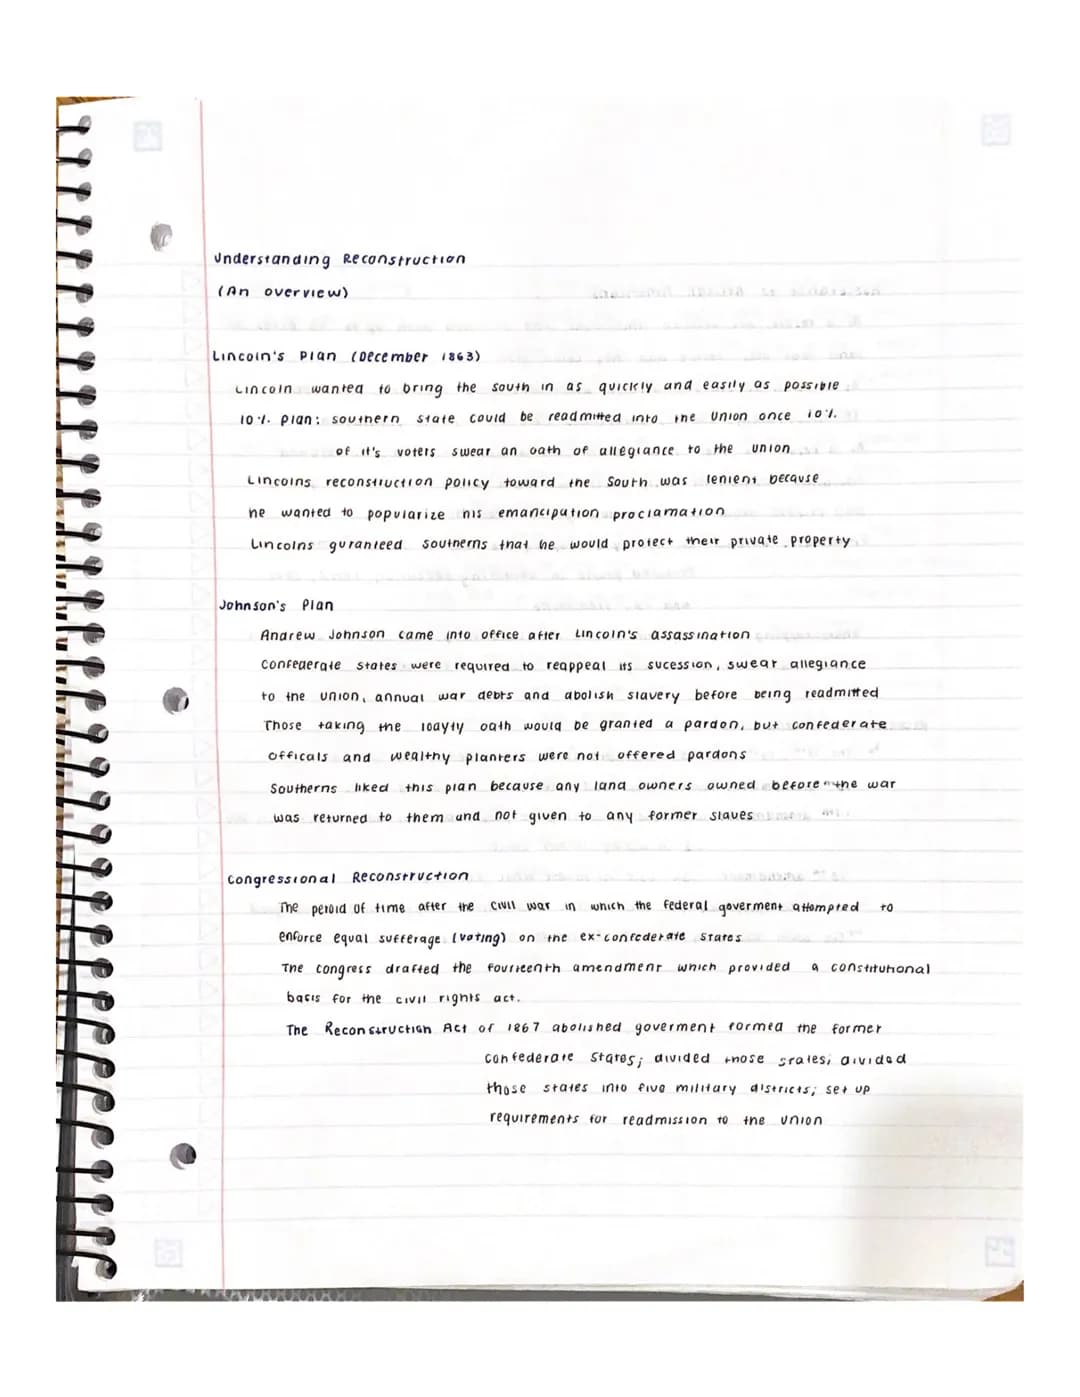 Understanding Reconstruction
(An overview)
Lincoln's Plan (December 1863)
Lincoln wanted to bring the south in as quickly and easily as possible
10% Plan: southern state could be readmitted into the Union once 10%
of it's voters swear an oath of allegiance to the union
Lincolns reconstruction policy toward the South was lenient because
he wanted to popularize his emancipation proclamation
Lincolns guranteed southerns that he would protect their private property
Johnson's Plan
Andrew Johnson came into office after Lincoln's assassination
Confederate states were required to reappeal its sucession, swear allegiance
to the union, annual war debts and abolish slavery before being readmitted
Those taking the loayty oath would be granted a pardon, but confederate
officals and wealthy planters were not offered pardons
Southerns liked this plan because any land owners owned before the war
was returned to them and not given to any former slaves
Congressional Reconstruction
The peroid of time after the civil war in which the federal goverment attempted to
enforce equal sufferage (voting) on the ex-confederate states
The congress drafted the fourteenth amendment which provided a constitutional
basis for the civil rights act.
The Reconstruction Act of 1867 abolished goverment formed the former
confederate states; divided those states; divided
those states into five military districts; set up
requirements for readmission to the union